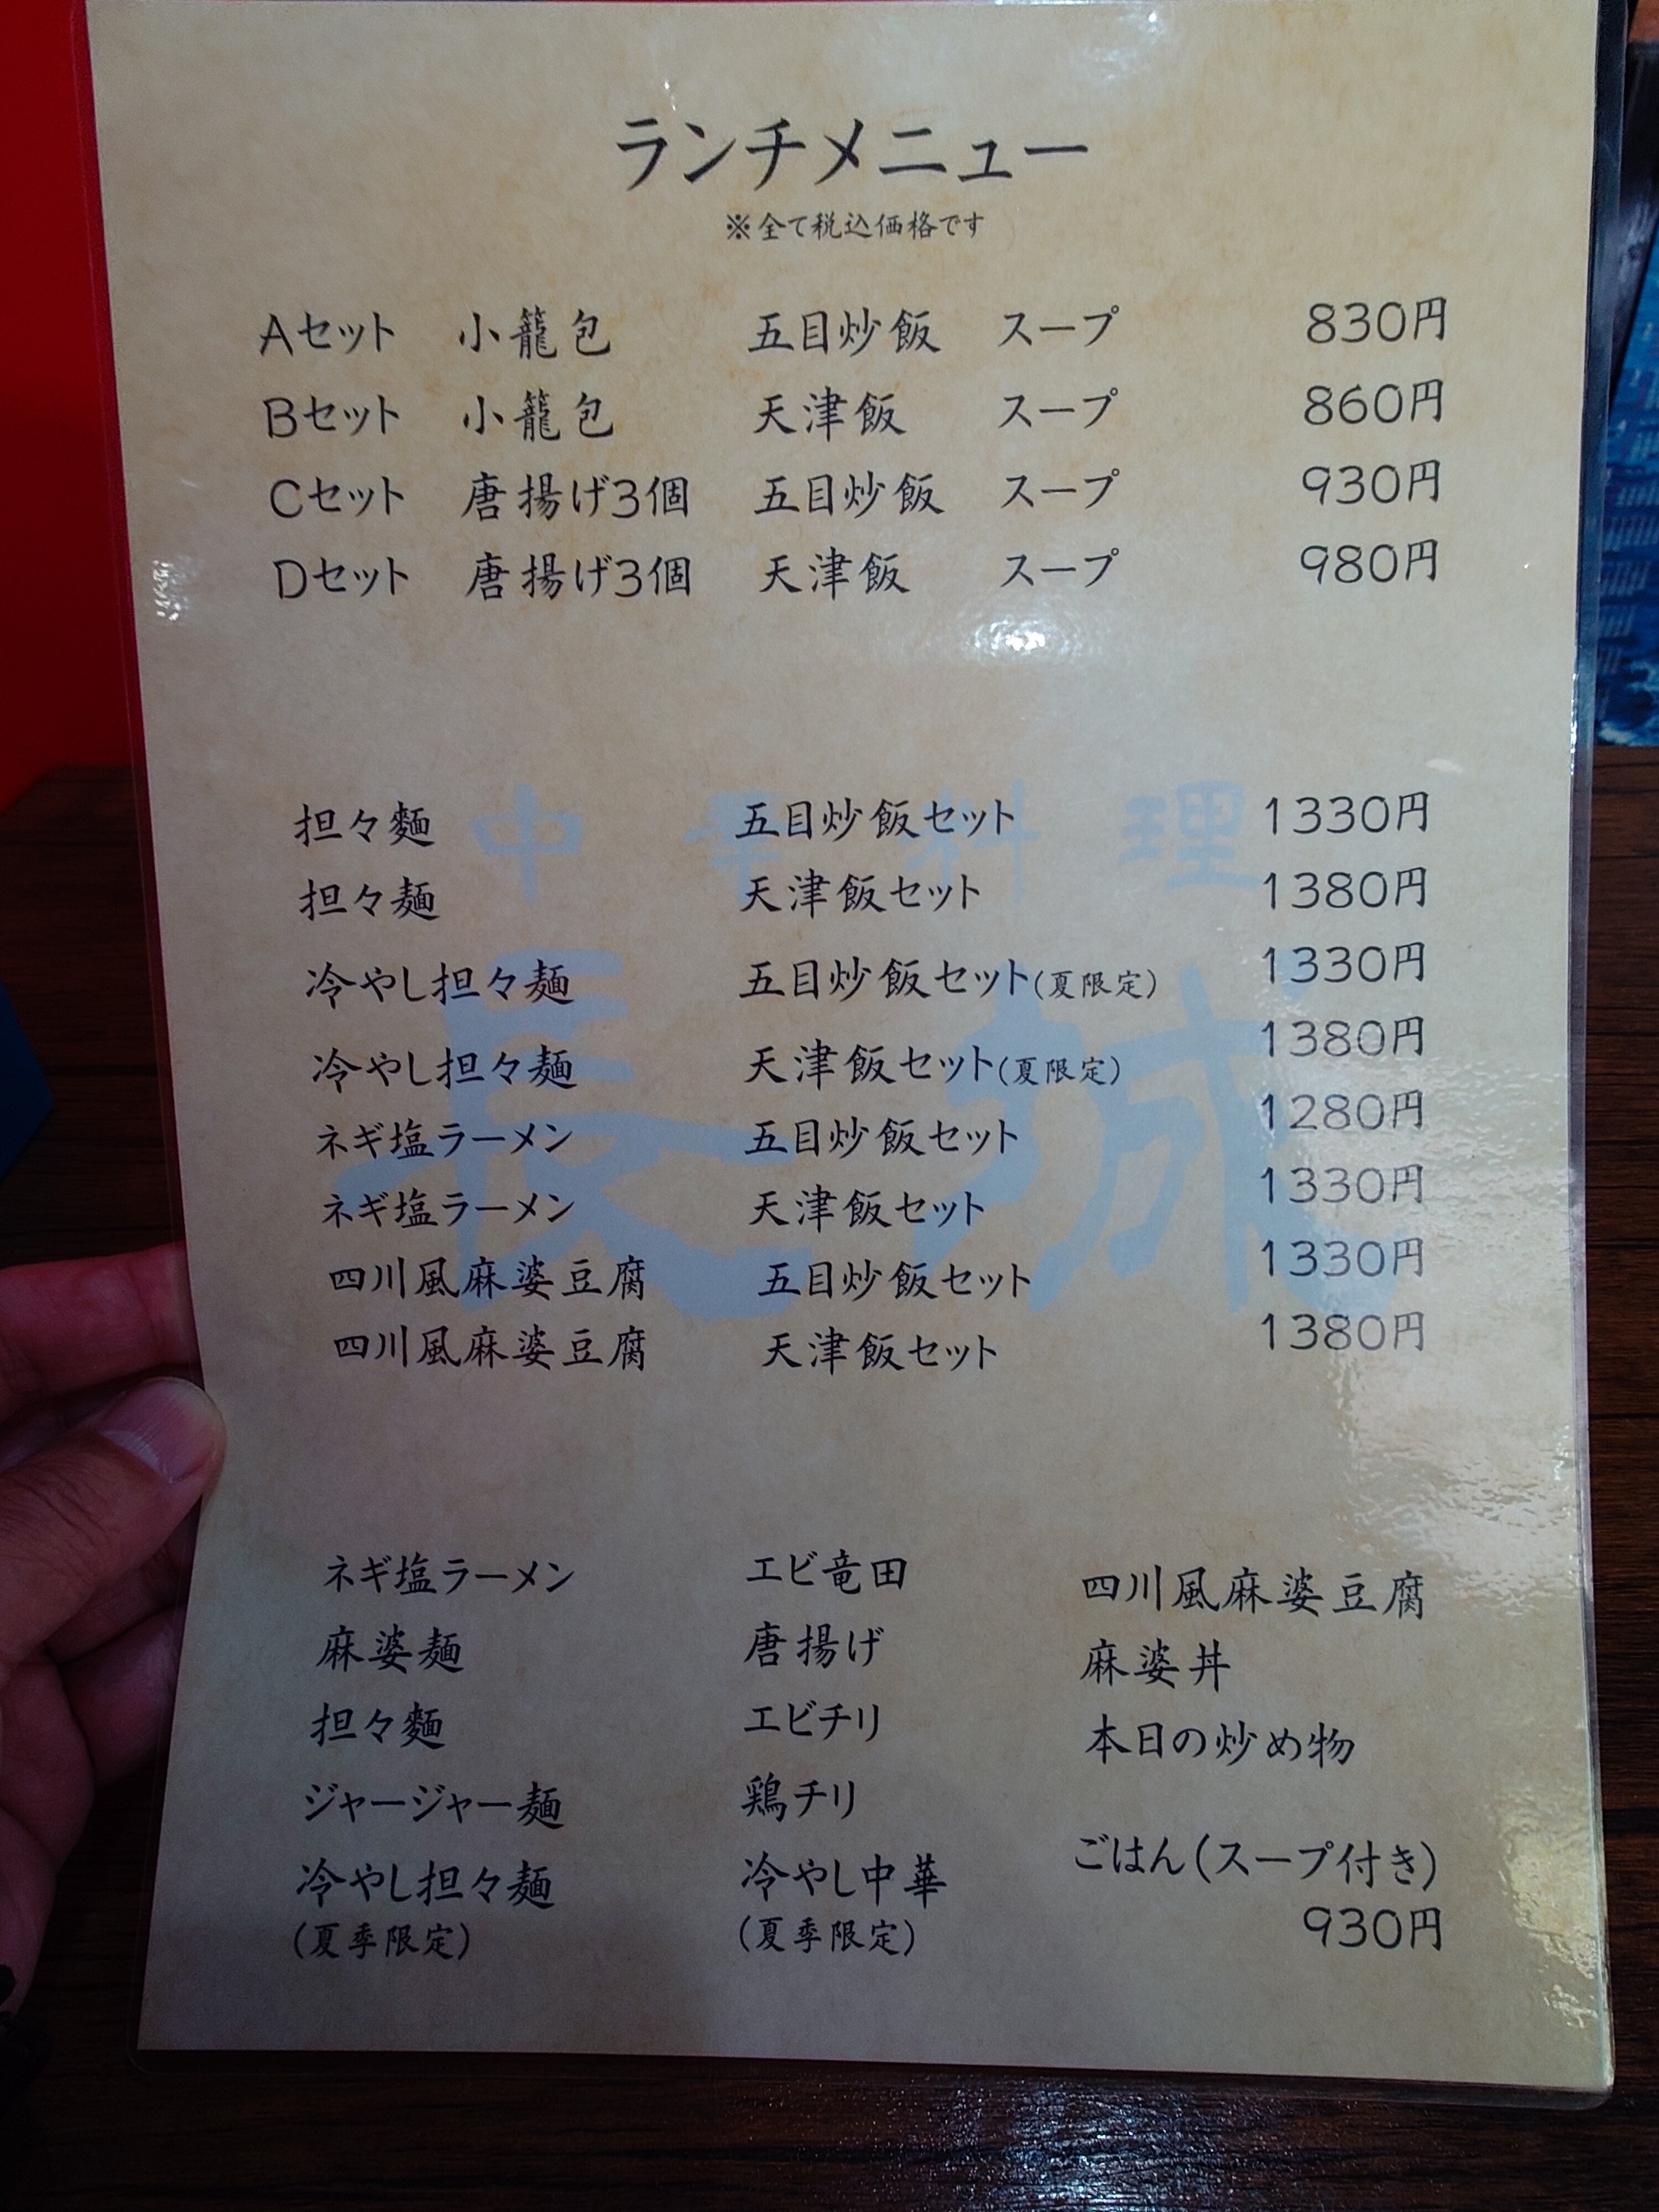 ランチメニュー
※全て税込価格です
Aセット 小籠包 五目炒飯 スープ 830円
Bセット 小籠包 天津飯 スープ 860円
Cセット 唐揚げ3個 五目炒飯 スープ 930円
Dセット 唐揚げ3個 天津飯 スープ 980円
中華料理
長城
担々麺 五目炒飯セット 1330円
担々麺 天津飯セット 1380円
冷やし担々麺 五目炒飯セット(夏限定) 1330円
冷やし担々麺 天津飯セット(夏限定) 1380円
ネギ塩ラーメン 五目炒飯セット 1280円
ネギ塩ラーメン 天津飯セット 1330円
四川風麻婆豆腐 五目炒飯セット 1330円
四川風麻婆豆腐 天津飯セット 1380円
ネギ塩ラーメン エビ竜田 四川風麻婆豆腐
麻婆麺 唐揚げ 麻婆丼
担々麺 エビチリ 本日の炒め物
ジャージャー麺 鶏チリ
冷やし担々麺 冷やし中華 ごはん(スープ付き)
(夏季限定) (夏季限定) 930円